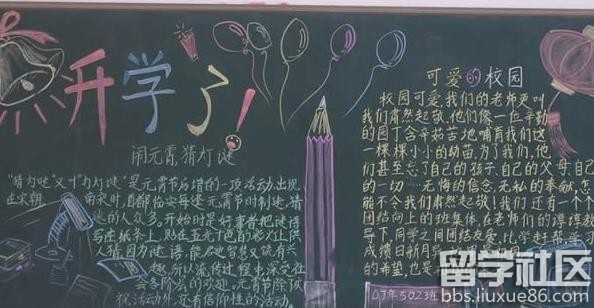 开学了!
闹元宵,猜灯谜
"猜灯谜"又叫"打灯谜"是元宵节后增的一项活动,出现
在宋朝。南宋时,首都临安每逢元宵节时制迷,猜
谜的人众多。开始时是好事者把谜语
写在纸条上,贴在五光十色的彩灯上供
人猜.因为谜语能启迪智慧又饶有兴
趣,所以流传过程中深受社
会各阶层的欢迎。元宵节除庆
祝活动外,还有信仰性的活动。
可爱的校园
校园可爱,我们的老师更叫
我们肃然起敬,他们像一位辛勤
的园丁含辛茹苦地哺育我们这
一棵棵小小的幼苗,为了我们,他
们甚至忘了自己的孩子,自己的父母,自己
的一切……无悔的信念,无私的奉献,怎
能不令我们肃然起敬!我们还有一个个
团结向上的班集体,在老师们的谆谆教
导下,同学之间团结友爱,比学赶帮,学习
成绩日新月异
的希望,也是
07年5023班
留学社区
bbs.liuxue86.com